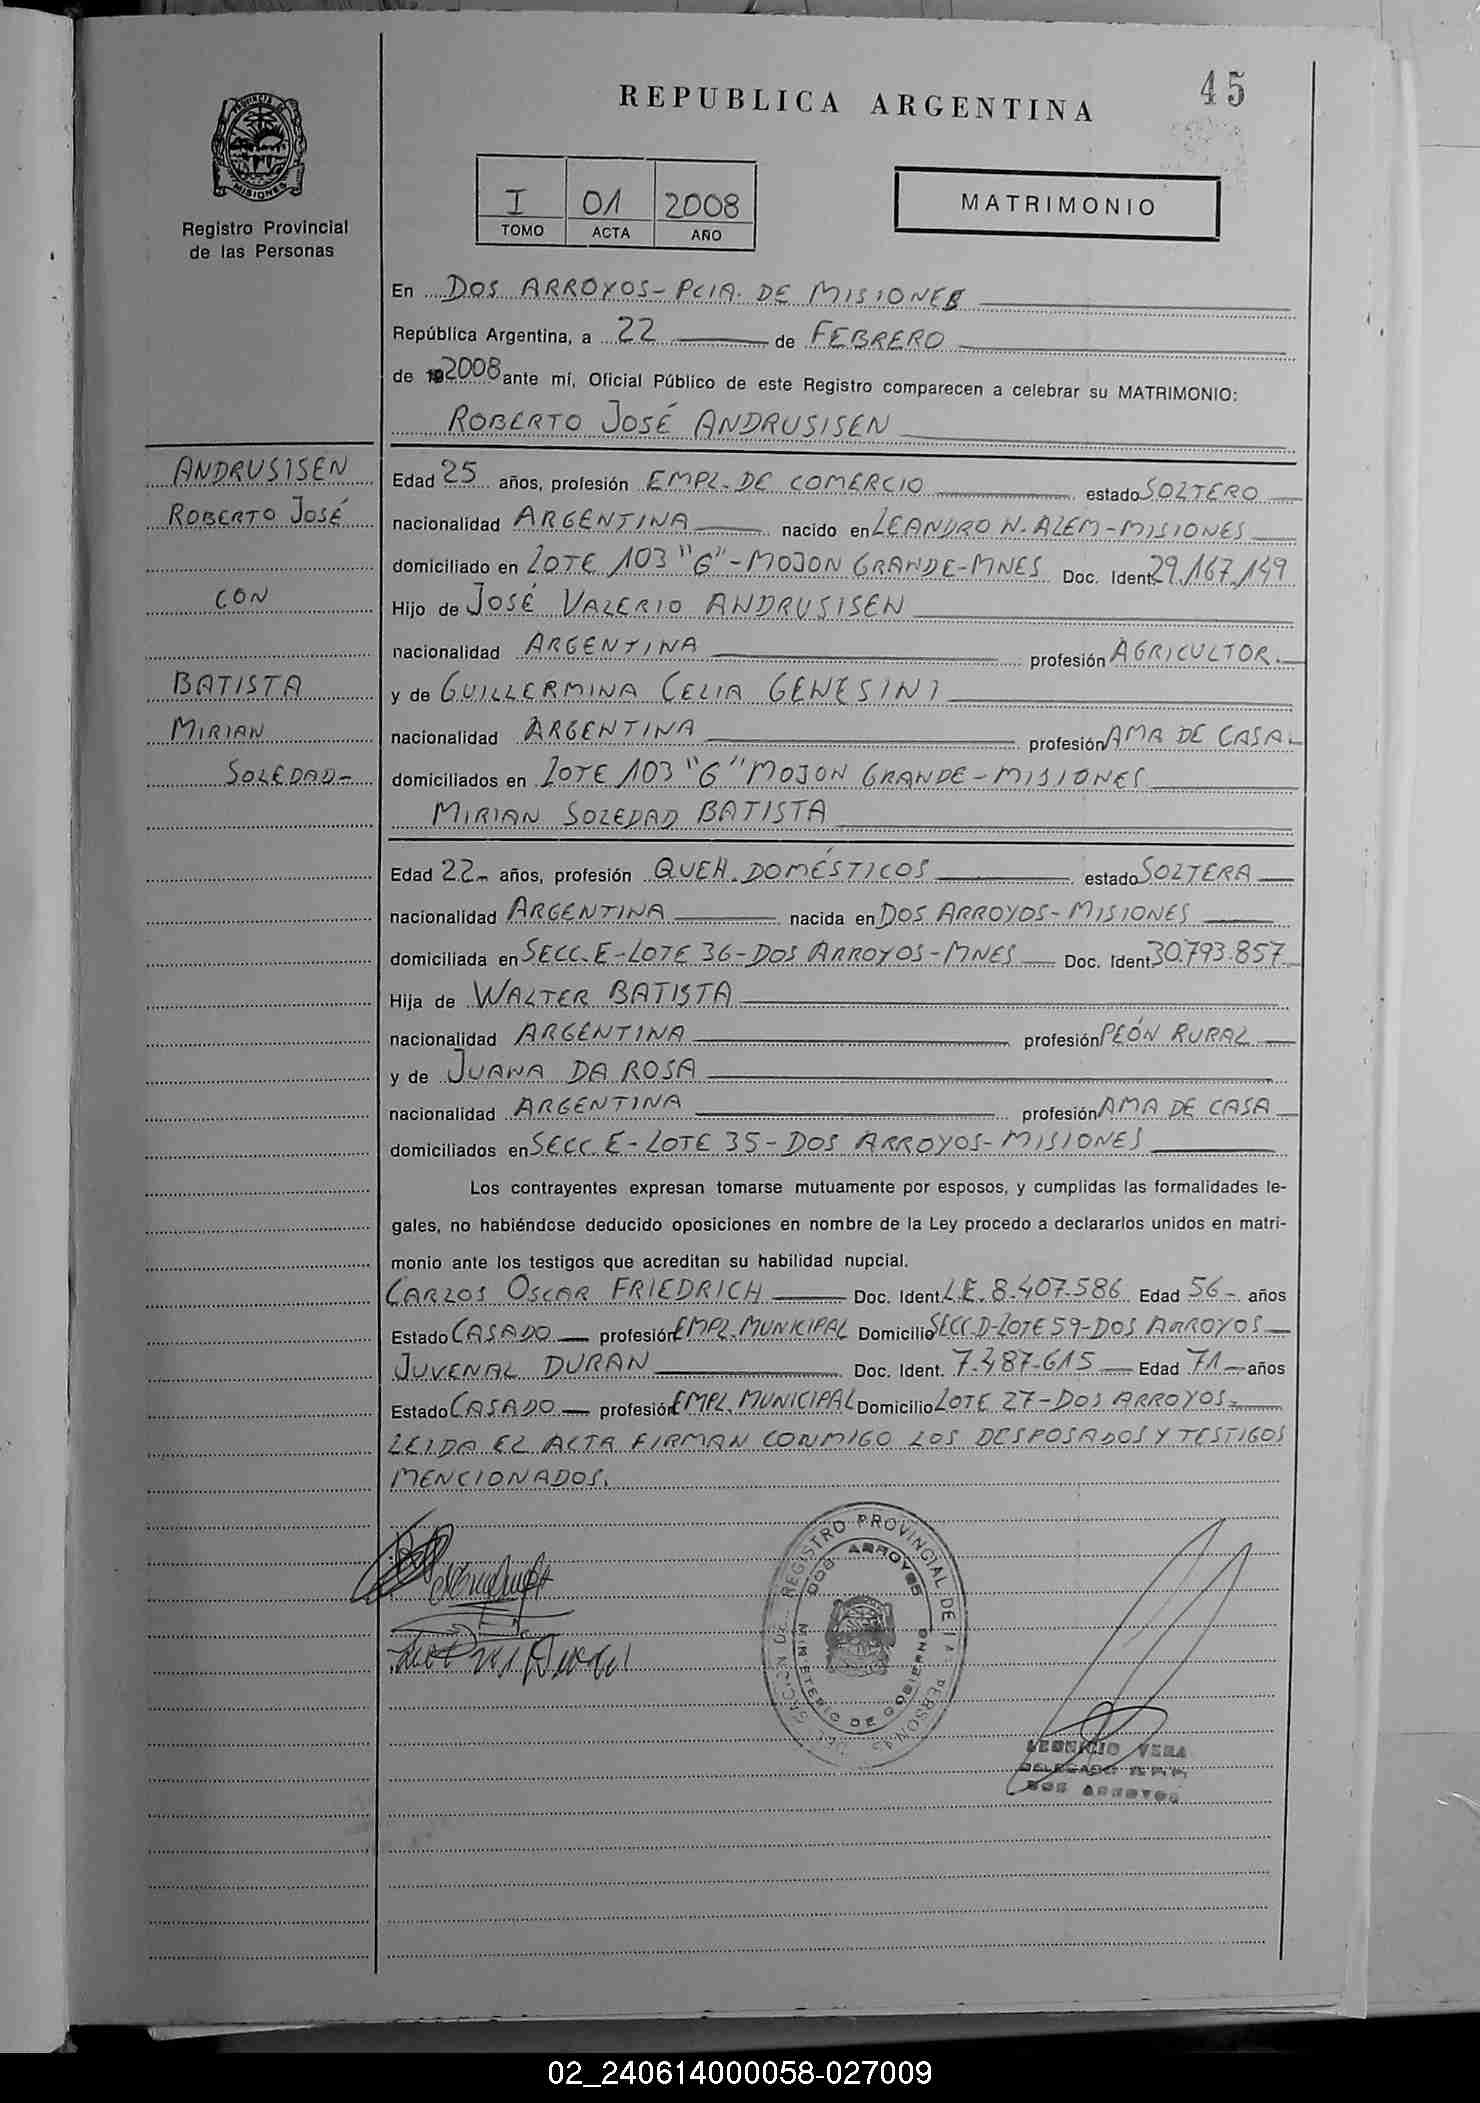 REPUBLICA ARGENTINA
45
PROVINCIA DE
MISIONES
Registro Provincial
de las Personas
I 01 2008
TOMO ACTA AÑO
MATRIMONIO
En DOS ARROYOS-PCIA. DE MISIONES
República Argentina, a 22 de FEBRERO
de 2008 ante mí, Oficial Público de este Registro comparecen a celebrar su MATRIMONIO:
ROBERTO JOSÉ ANDRUSISEN
ANDRUSISEN
ROBERTO JOSÉ
CON
BATISTA
MIRIAN
SOLEDAD-
Edad 25 años, profesión EMPL. DE COMERCIO estado SOLTERO
nacionalidad ARGENTINA nacido en LEANDRO N. ALEM-MISIONES
domiciliado en LOTE 103 "G"-MOJON GRANDE-MNES Doc. Ident. 29.167.149
Hijo de JOSÉ VALERIO ANDRUSISEN
nacionalidad ARGENTINA profesión AGRICULTOR.
y de GUILLERMINA CELIA GENESINI
nacionalidad ARGENTINA profesión AMA DE CASA
domiciliados en LOTE 103 "G" MOJON GRANDE-MISIONES
MIRIAN SOLEDAD BATISTA
Edad 22- años, profesión QUEH. DOMÉSTICOS estado SOLTERA
nacionalidad ARGENTINA nacida en DOS ARROYOS-MISIONES
domiciliada en SECC. E-LOTE 36-DOS ARROYOS-MNES Doc. Ident 30.793.857
Hija de WALTER BATISTA
nacionalidad ARGENTINA profesión PEÓN RURAL
y de JUANA DA ROSA
nacionalidad ARGENTINA profesión AMA DE CASA
domiciliados en SECC. E-LOTE 35-DOS ARROYOS-MISIONES
Los contrayentes expresan tomarse mutuamente por esposos, y cumplidas las formalidades le-
gales, no habiéndose deducido oposiciones en nombre de la Ley procedo a declararlos unidos en matri-
monio ante los testigos que acreditan su habilidad nupcial.
CARLOS OSCAR FRIEDRICH Doc. Ident. L.E. 8.407.586 Edad 56- años
Estado CASADO profesión EMPL. MUNICIPAL Domicilio SECC. D-LOTE 59-DOS ARROYOS
JUVENAL DURAN Doc. Ident. 7.487.615 Edad 71 años
Estado CASADO profesión EMPL. MUNICIPAL Domicilio LOTE 27-DOS ARROYOS.
LEIDA EL ACTA FIRMAN CONMIGO LOS DESPOSADOS Y TESTIGOS
MENCIONADOS.
REGISTRO PROVINCIAL DE LAS PERSONAS
DOS ARROYOS
MINISTERIO DE GOBIERNO
VERA
DELEGADO R.P.P.
DOS ARROYOS
02_240614000058-027009